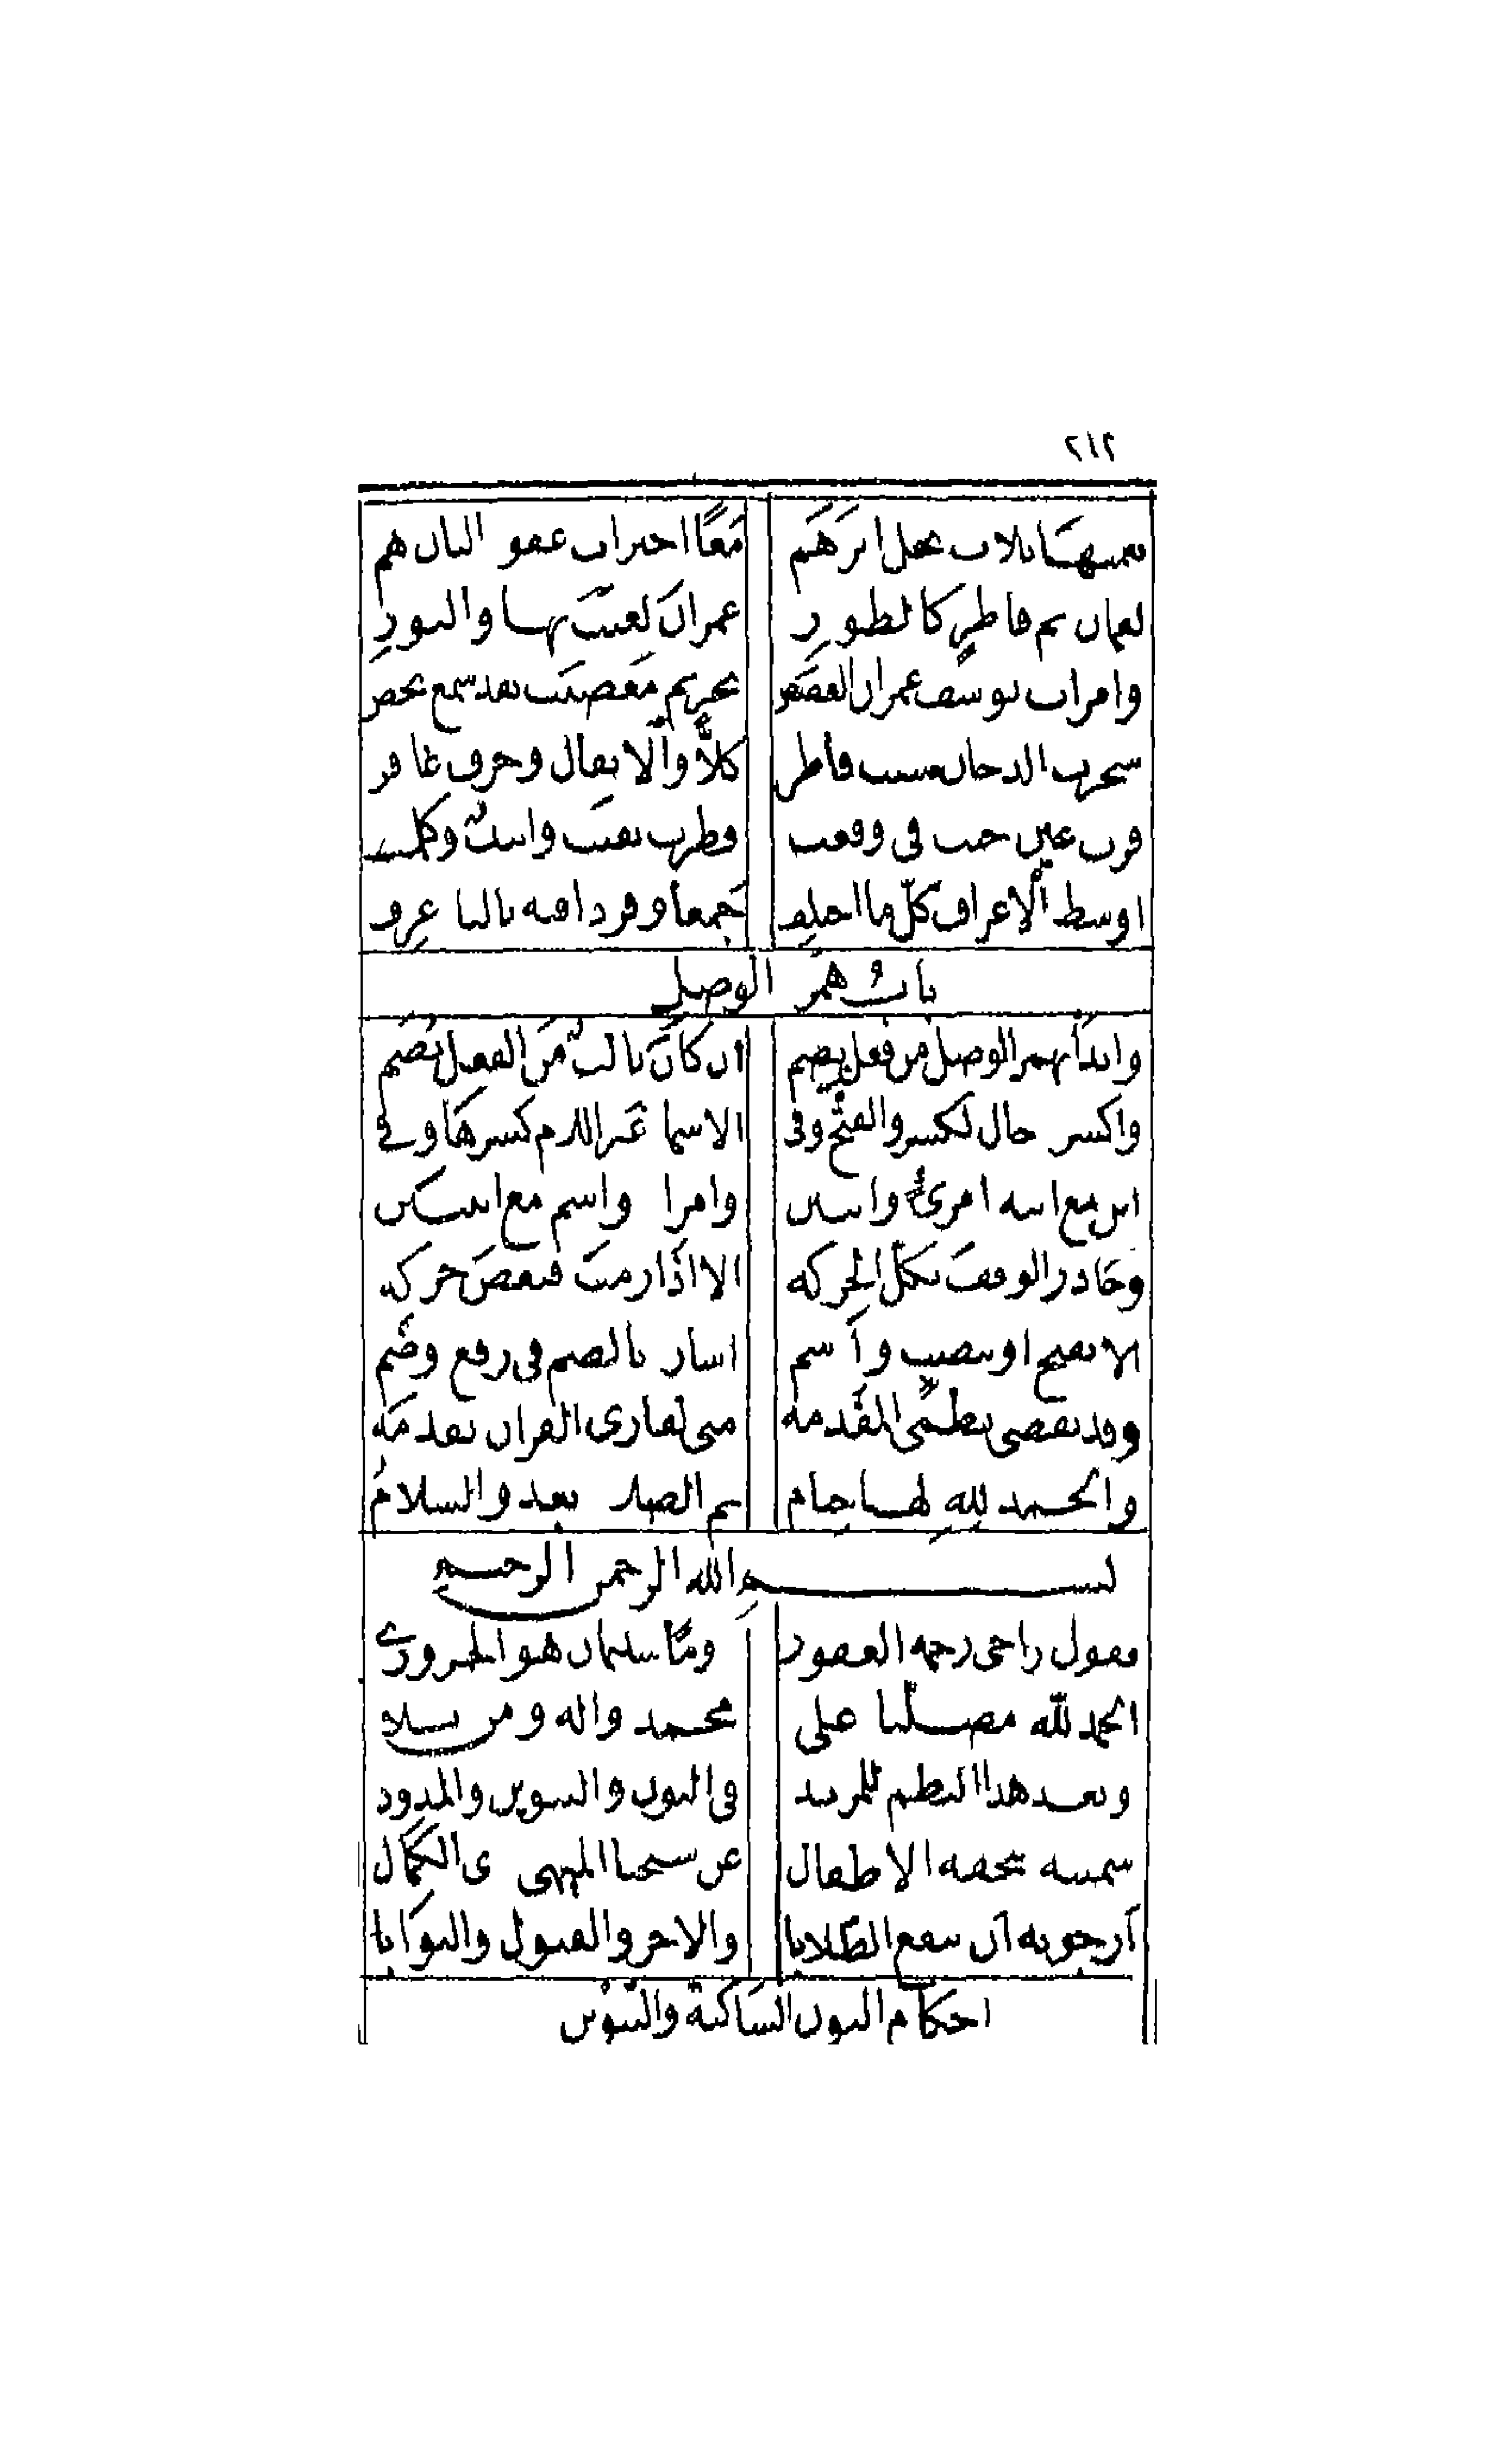 ٢١٢
نعمتها ثلاث نحل ابرهم معًا اخيرات عقود الثان هم
لقمان ثم فاطر كالطور عمران لعنت بها والنور
وامرات يوسف عمران القصص تحريم معصيت بقد سمع يخص
شجرت الدخان سنت فاطر كلاًّ والانفال وحرف غافر
قرت عين جنت في وقعت فطرت بقيت وابنت وكلمت
اوسط الاعراف كلّ ما اختلف جمعا وفردا فيه بالتا عرف
باب همز الوصل
وابدأ بهمز الوصل من فعل بضم ان كان ثالث من الفعل يضم
واكسره حال الكسر والفتح وفى الاسما غير اللام كسرها وفي
ابن مع ابنه امرئ واثنين وامراة واسم مع اثنتين
وحاذر الوقف بكل الحركه الا اذا رمت فبعض حركه
الا بفتح او بنصب وأشم اشارة بالضم فى رفع وضم
وقد تقضى نظمي المقدمه منى لقارى القران تقدمه
والحمد لله لها ختام ثم الصلاة بعد والسلام
بسم الله الرحمن الرحيم
يقول راجى رحمة الغفور دوما سليمان هو الجمزوري
الحمد لله مصليا على محمد واله ومن تلا
وبعد هذا النظم للمريد فى النون والتنوين والمدود
سميته بتحفه الاطفال عن شيخنا الميهى ذى الكمال
أرجو به أن ينفع الطلابا والاجر والقبول والثوابا
احكام النون الساكنة والتنوين